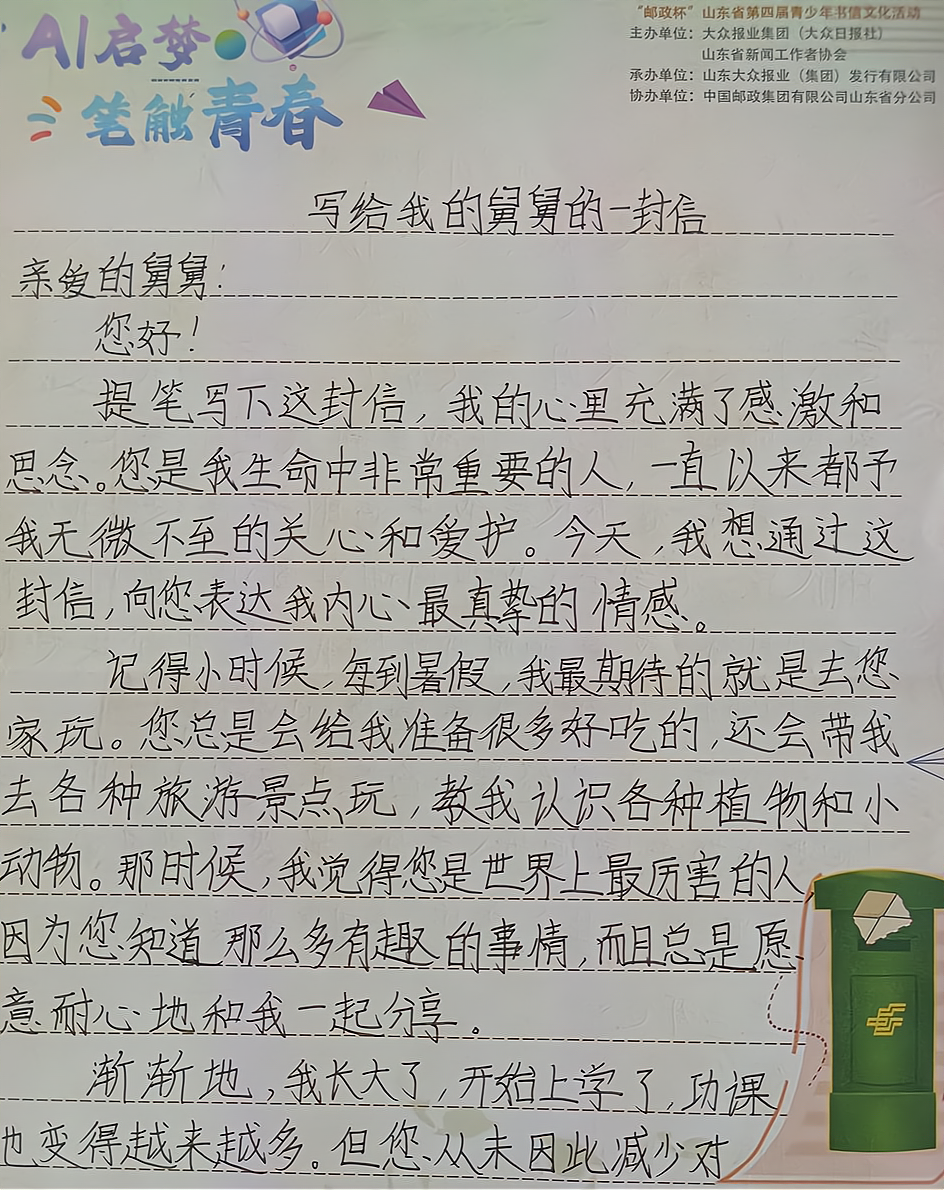 AI启梦
笔触青春
“邮政杯”山东省第四届青少年书信文化活动
主办单位：大众报业集团（大众日报社）
山东省新闻工作者协会
承办单位：山东大众报业（集团）发行有限公司
协办单位：中国邮政集团有限公司山东省分公司
写给我的舅舅的一封信
亲爱的舅舅：
您好！
提笔写下这封信，我的心里充满了感激和
思念。您是我生命中非常重要的人，一直以来都予
我无微不至的关心和爱护。今天，我想通过这
封信，向您表达我内心最真挚的情感。
记得小时候，每到暑假，我最期待的就是去您
家玩。您总是会给我准备很多好吃的，还会带我
去各种旅游景点玩，教我认识各种植物和小
动物。那时候，我觉得您是世界上最厉害的人
因为您知道那么多有趣的事情，而且总是愿
意耐心地和我一起分享。
渐渐地，我长大了，开始上学了，功课
也变得越来越多。但您从未因此减少对